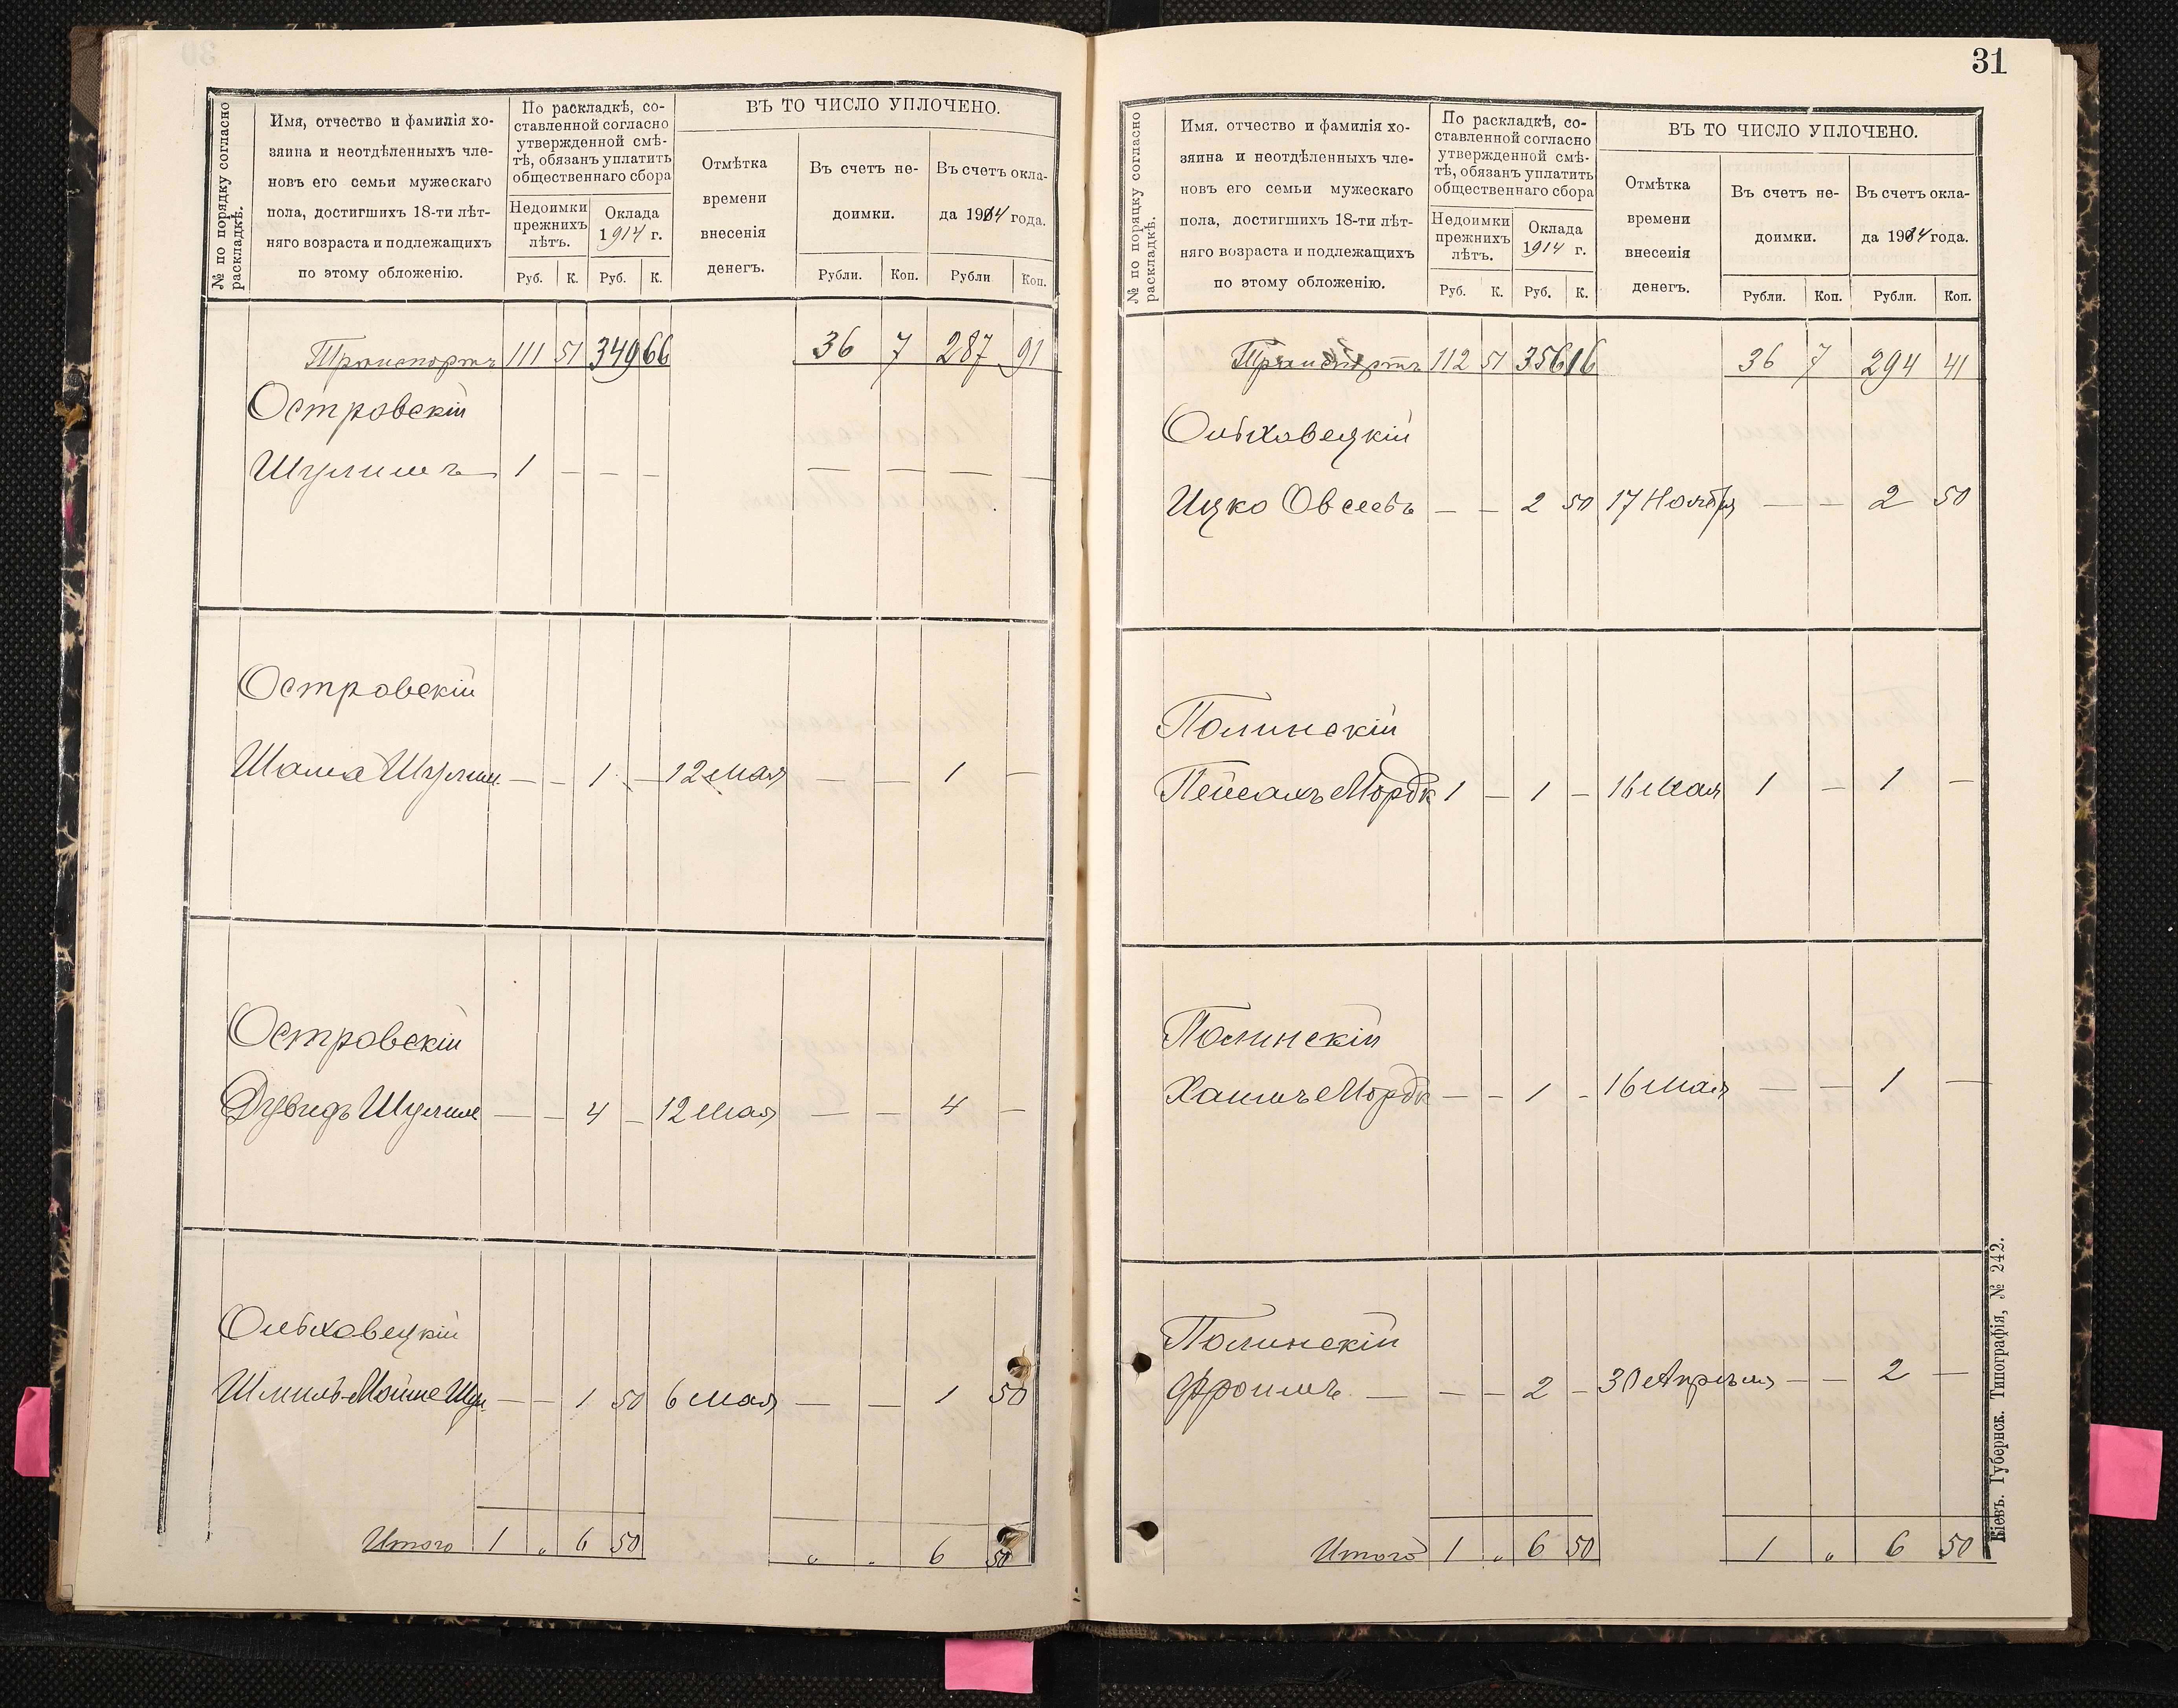 № по порядку согласно раскладкѣ.
Имя, отчество и фамилія хо-
зяина и неотдѣленныхъ чле-
новъ его семьи мужескаго
пола, достигшихъ 18-ти лѣт-
няго возраста и подлежащихъ
по этому обложенію.
По раскладкѣ, со-
ставленной согласно
утвержденной смѣ-
тѣ, обязанъ уплатить
общественнаго сбора
Недоимки прежнихъ лѣтъ.
Оклада 1914 г.
Руб. К. Руб. К.
ВЪ ТО ЧИСЛО УПЛОЧЕНО.
Отмѣтка
времени
внесенія
денегъ.
Въ счетъ не-
доимки.
Въ счетъ окла-
да 1914 года.
Рубли. Коп. Рубли Коп.
Транспортъ 111 51 349 66 36 7 287 91
Островскій
Шулимъ 1 — — — — — — —
Островскій
Шама Шулим. — — 1 — 12 мая — — 1 —
Островскій
Дувидъ Шулим — — 4 — 12 мая — — 4 —
Ольховецкій
Шмиль-Мойше Шул. — — 1 50 6 мая — — 1 50
Итого 1 „ 6 50 „ „ 6 50
31
№ по порядку согласно раскладкѣ.
Имя. отчество и фамилія хо-
зяина и неотдѣленныхъ чле-
новъ его семьи мужескаго
пола, достигшихъ 18-ти лѣт-
няго возраста и подлежащихъ
по этому обложенію.
По раскладкѣ, со-
ставленной согласно
утвержденной смѣ-
тѣ, обязанъ уплатить
общественнаго сбора
Недоимки прежнихъ лѣтъ.
Оклада 1914 г.
Руб. К. Руб. К.
ВЪ ТО ЧИСЛО УПЛОЧЕНО.
Отмѣтка
времени
внесенія
денегъ.
Въ счетъ не-
доимки.
Въ счетъ окла-
да 1914 года.
Рубли. Коп. Рубли. Коп.
Транспортъ 112 51 356 16 36 7 294 41
Ольховецкій
Ицко Овсеевъ — — 2 50 17 Ноября — — 2 50
Полинскій
Пейсахъ Мордк 1 — 1 — 16 мая 1 — 1 —
Полинскій
Хаимъ Мордк — — 1 — 16 мая — — 1 —
Полинскій
Фроимъ — — — 2 — 30 Апрѣля — — 2 —
Итого 1 „ 6 50 1 „ 6 50
Кіевъ. Губернск. Типографія, № 242.